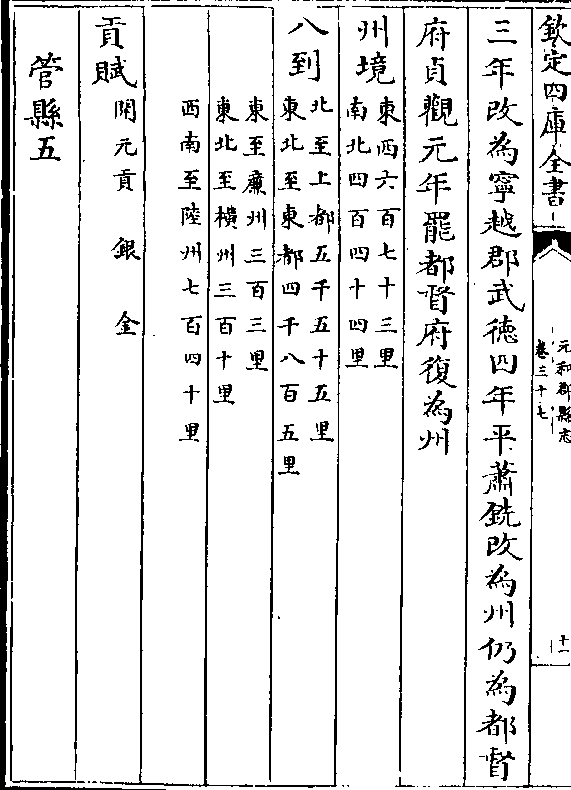 欽定四庫全書
元和郡縣志
卷三十七
十一
三年改為寧越郡武徳四年平蕭銑改為州仍為都督
府貞觀元年罷都督府復為州
州境
東西六百七十三里
南北四百四十四里
八到
北至上都五千五十五里
東北至東都四千八百五里
東至廉州三百三里
東北至橫州三百十里
西南至陸州七百四十里
貢賦
開元貢 銀 金
管縣五